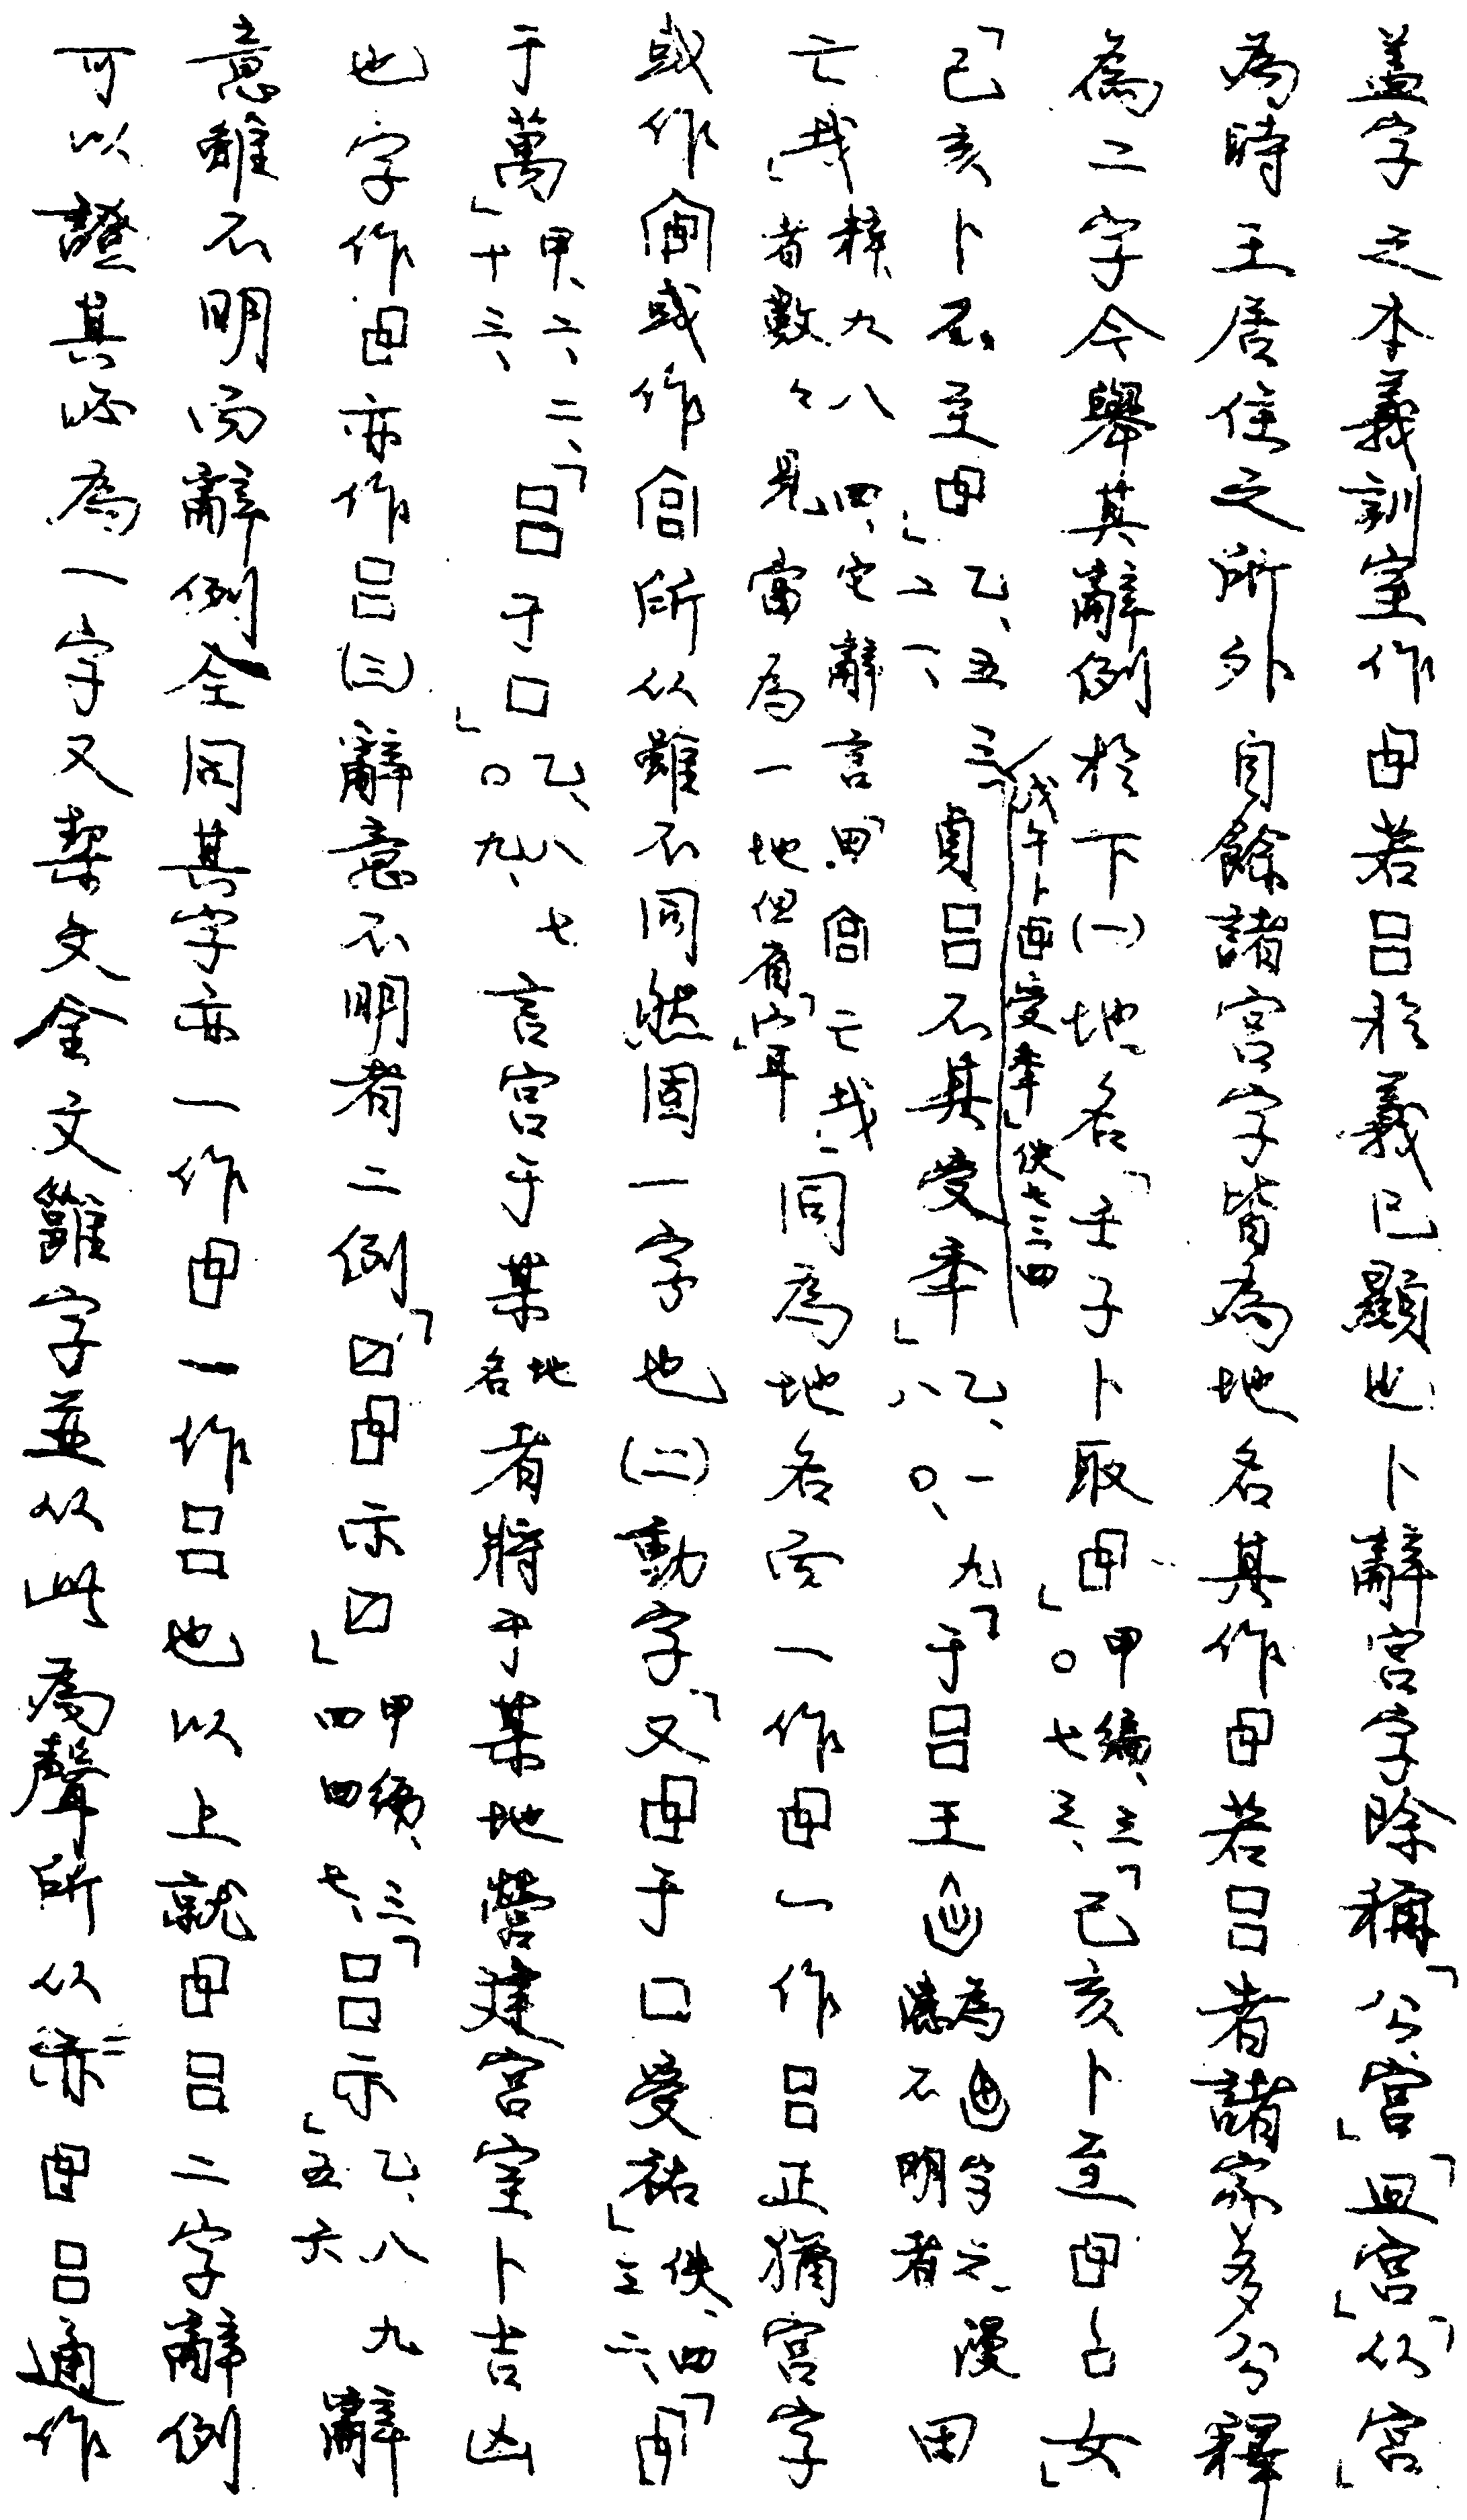 蓋字之本義訓室作㠯若呂於義已顯也卜辭宮字除稱「公宮」「皿宮」「从宮」
為時王居住之所外自餘諸宮字皆為地名其作若呂者諸家多分釋
為二字今舉其辭例於下㈠地名「壬子卜取」甲編、三〇七三、「己亥卜至占女」
「戊午卜受秊」佚七三四
「已亥卜不至」乙、五三二一、貞呂不其受秊」乙、一九八〇、「于呂王為字之漫漶不明者田
亡𢦏」粹、九八四、它辭言「田宮亡𢦏」者數々見當為一地但有「宀」耳同為地名而一作一作呂正猶宮字
或作或作宮所从雖不同然固一字也㈡動字「又于口受祐」佚、四三二、「
于萬」甲、二、二、十三、「呂于口」乙、八七〇九、言宮于某地名者將于某地營建宮室卜吉凶
也字作亦作呂㈢辭意不明者二例「〼示〼」甲編、三四四七、「呂示」乙、八九五六辭
意雖不明而辭例全同其字亦一作一作呂也以上就呂二字辭例
可以證其必為一字又栔文金文雝字並从此為聲所从亦呂通作